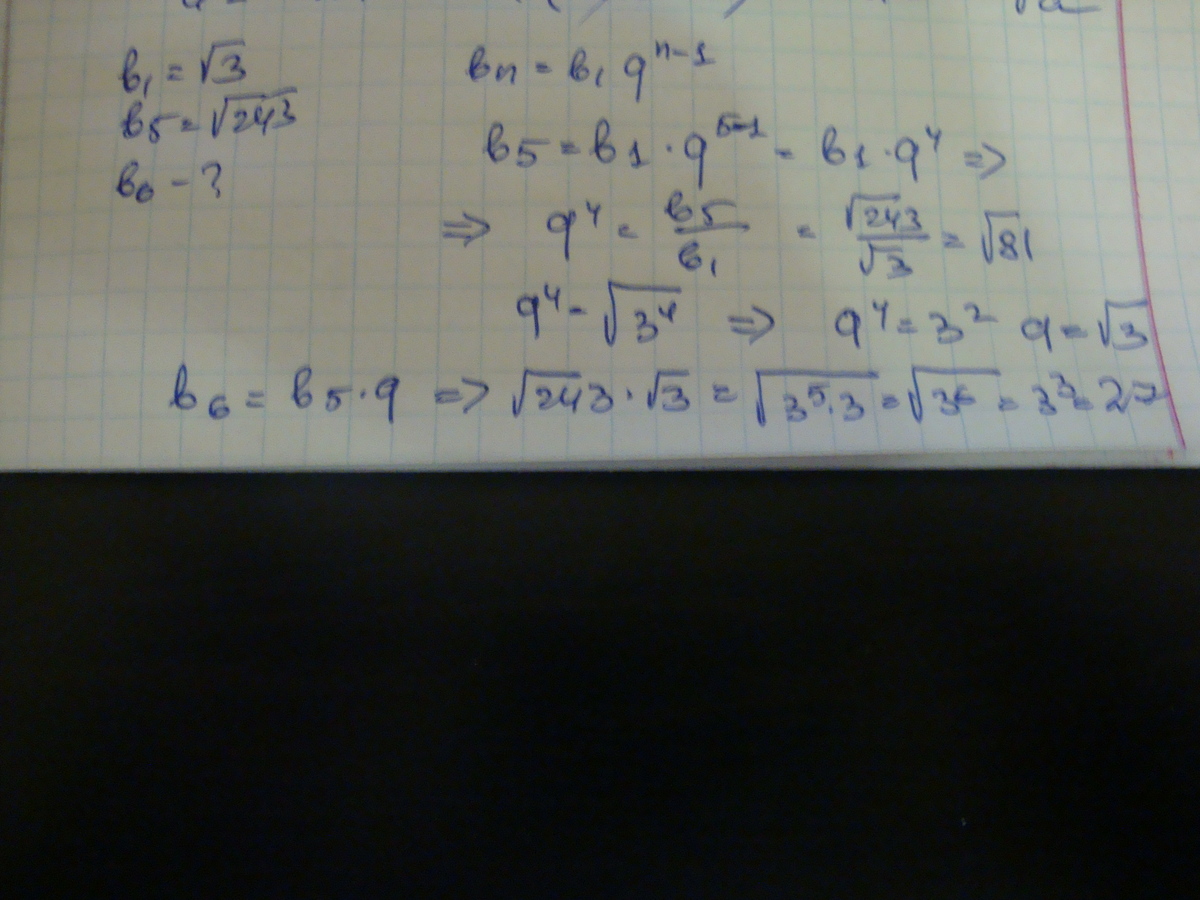 b₁ = √3
b5 = √243
b6 - ?
bn = b₁ q^(n-1)
b5 = b1 · q^(5-1) = b1 · q⁴ =>
=> q⁴ = b5/b₁ = √243/√3 = √81
q⁴ = √(3⁴) => q⁴ = 3² q = √3
b6 = b5 · q => √243 · √3 = √(3⁵·3) = √(3⁶) = 3³ = 27